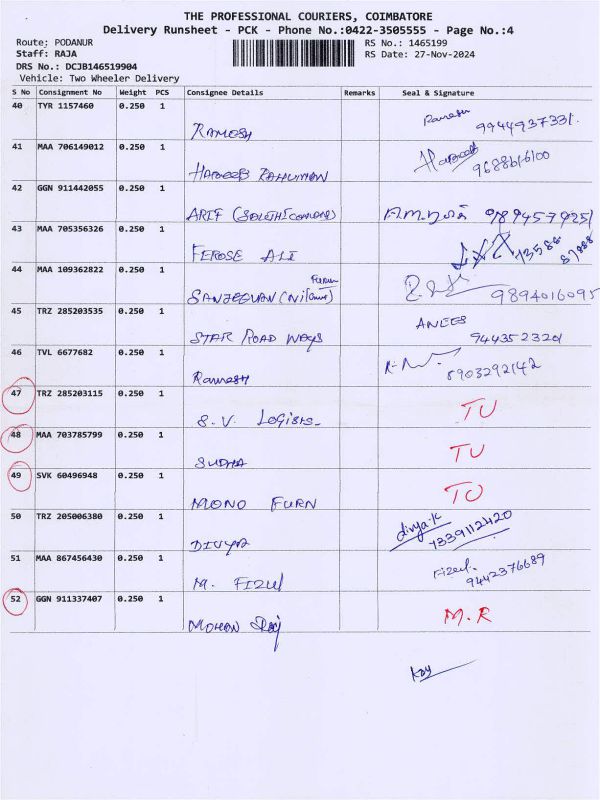 THE PROFESSIONAL COURIERS, COIMBATORE
Delivery Runsheet - PCK - Phone No.:0422-3505555 - Page No.:4
Route: PODANUR RS No.: 1465199
Staff: RAJA RS Date: 27-Nov-2024
DRS No.: DCJB146519904
Vehicle: Two Wheeler Delivery
S No Consignment No Weight PCS Consignee Details Remarks Seal & Signature
40 TYR 1157460 0.250 1 RAMESH Ramesh 9944937331
41 MAA 706149012 0.250 1 HABEEB RAHUMAN Habeeb
42 GGN 911442055 0.250 1 ARIF
43 MAA 705356326 0.250 1 FEROSE ALI 73586 87888
44 MAA 109362822 0.250 1 9894016095
45 TRZ 285203535 0.250 1 STAR ROAD WAYS ANEES 9443523201
46 TVL 6677682 0.250 1 Ramesh 8903292142
47 TRZ 285203115 0.250 1 S.V. LOGISTS TU
48 MAA 703785799 0.250 1 SUDHA TU
49 SVK 60496948 0.250 1 MONO FURN TU
50 TRZ 205006380 0.250 1 DIVYA divya.k 7339112420
51 MAA 867456430 0.250 1 M. FIZUL Fizul. 9442376689
52 GGN 911337407 0.250 1 MOHAN RAJ M.R